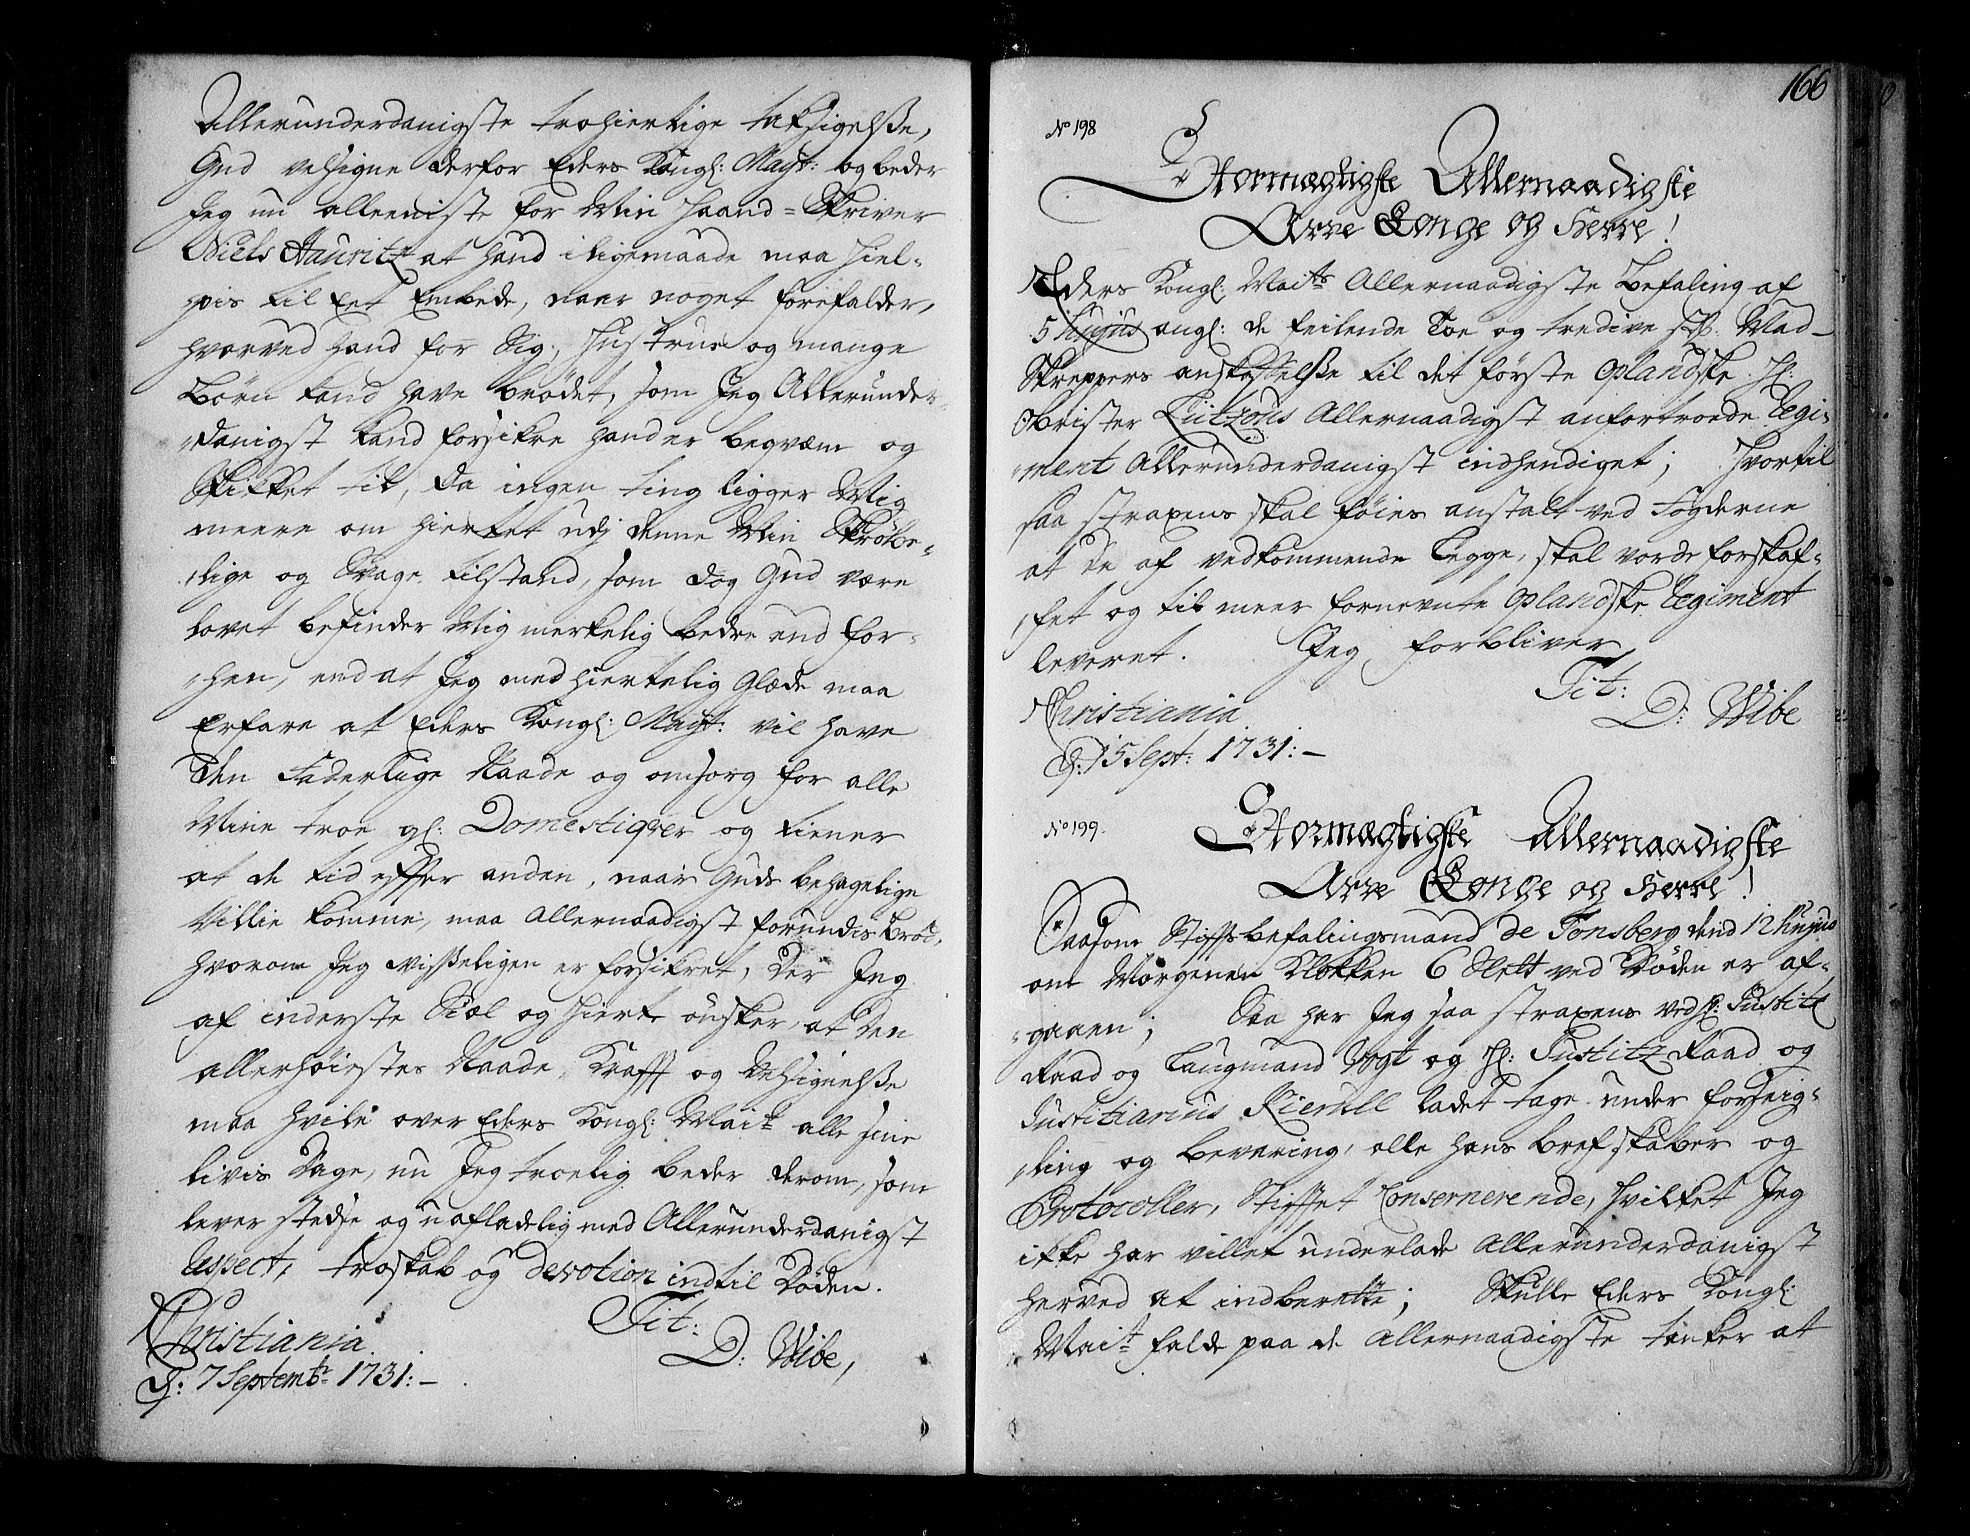 Allerunderdanigste trohiertige taksigelsse,
Gud velsigne derfor Eders Kongl: Mayt: og beder
Jeg nu alleeniste for Min Haand-Skriver
Niels Hauritz at hand i ligemaade maa hiel-
pis til Eet Embede, naar noget forefalder,
hvorved hand for Sig, Hustrue og mange
Børn kand have brødet, som Jeg Allerunder-
danigst kand forsikre hand er beqvæm og
Skikket til, da ingen ting ligger Mig
meere om hiertet udj denne Min Skrøbe-
lige og Svage tilstand, som dog Gud være
lovet befinder Mig merkelig bedre end for-
hen, end at Jeg med hiertelig Glæde maa
Erfare at Eders Kongl: Mayt: vil have
den Faderlige Naade og omsorg for alle
Mine troe gl: Domestiqver og tiener
at de tid effter anden, naar Guds behagelige
Villie komme, maa Allernaadigst forundis Brød,
hvorom Jeg visseligen er forsikret, der Jeg
af inderste Siæl og Hierte ønsker, at den
allerhøiestes Naade, Krafft og Velsignelsse
maa hvile over Eders Kongl: Mait alle sine
livis Dage, nu Jeg troelig beder derom, som
lever stedse og uafladelig med Allerunderdanigst
Respect, troskab og devotion indtil Døden.
Christiania Tit:
d: 7 Septembr 1731:- D: Wibe,
166
No 198
Stormægtigste Allernaadigste
Arve Konge og Herre!
Eders Kongl: Maits Allernaadigste Befaling af
5 hujus angl: de feilende Toe og tredive sch: Mad-
Skreppers anskaffelsse til det første Oplandske H:
Obrister Lützous Allernaadigst anfortroede Regi-
ment Allerunderdanigst indhendiget; Hvortil
saa straxens skal føies anstalt ved Fogderne
at de af vedkommende Legge, skal vorde forskaf-
fet og til meer fornevnte Oplandske Regiment
leveret. Jeg forbliver
Tit:
Christiania D: Wibe
d: 15 Sept: 1731:-
No 199.
Stormægtigste Allernaadigste
Arve Konge og Herre!
Saasom Stiftsbefalingsmand de Tonsberg dend 12 hujus
om Morgenen Klokken 6 Slett ved Døden er af-
gaaen; Saa har Jeg saa straxens ved H: Justitz
Raad og Laugmand Vogt og H: Justitz Raad og
Justitiarius Kierulf ladet tage under forseig-
ling og bevaring, alle hans brefskaber og
Protocoller, Stifftet Consernerende, Hvilket Jeg
ikke har villet underlade Allerunderdanigst
herved at indberette; Skulle Eders Kongl:
Mait falde paa de Allernaadigste tanker at